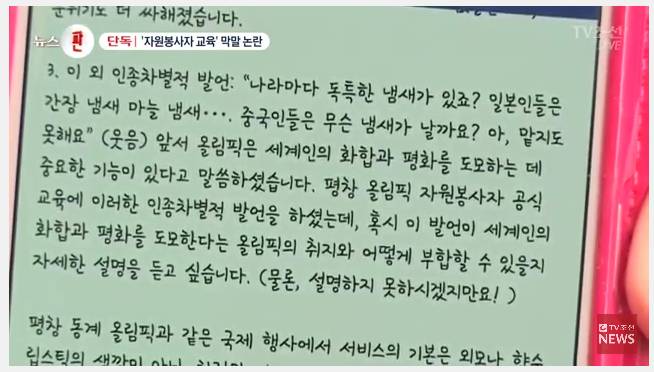 분위기도 더 싸해졌습니다.
TV조선
LIVE
뉴스 판
단독 | '자원봉사자 교육' 막말 논란
3. 이 외 인종차별적 발언: “나라마다 독특한 냄새가 있죠? 일본인들은
간장 냄새 마늘 냄새···. 중국인들은 무슨 냄새가 날까요? 아, 맡지도
못해요” (웃음) 앞서 올림픽은 세계인의 화합과 평화를 도모하는 데
중요한 기능이 있다고 말씀하셨습니다. 평창 올림픽 자원봉사자 공식
교육에 이러한 인종차별적 발언을 하셨는데, 혹시 이 발언이 세계인의
화합과 평화를 도모한다는 올림픽의 취지와 어떻게 부합할 수 있을지
자세한 설명을 듣고 싶습니다. (물론, 설명하지 못하시겠지만요! )
평창 동계 올림픽과 같은 국제 행사에서 서비스의 기본은 외모나 향수
립스틱의 색깔이 아닌
TV조선
NEWS